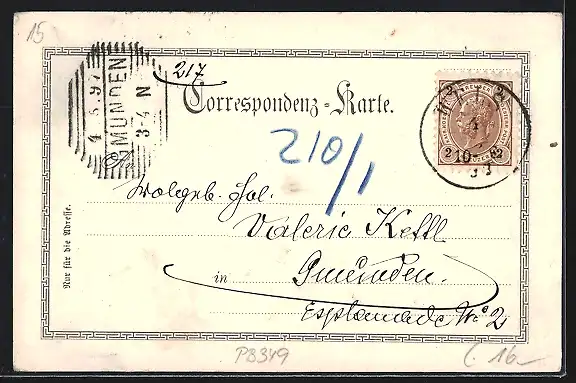 15
217
4.5.97
GMUNDEN
3-4 N
Correspondenz-Karte.
210/1
An
Wolgeb. Frl.
Valerie Kettl
in Gmunden.
Esplanade No 2
Nur für die Adresse.
PB349
16.-